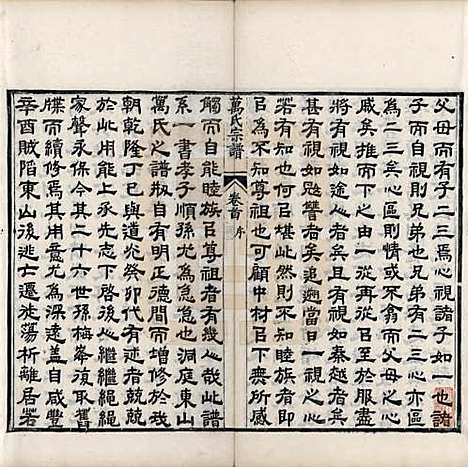 父母而有子二三焉心視諸子如一也諸
子而自視則兄弟也兄弟有二三心亦區
為二三矣心區則情或不盡父母之心
戚矣推而下之由一從㠯至於服盡
將有視如途人者矣且有視如秦越者矣
甚有視如尟讐者矣追遡當日一視之心
若有知也何㠯堪此然非不知睦族者即
㠯為不知尊祖也可顧中材㠯下無所感
萬氏宗譜
卷首
序
觸而自能睦族㠯尊祖者有幾人哉此譜
系一書孝子順孫尤為急急也洞庭東山
萬氏之譜敃自有明正德間而增修於我
朝乾隆丁巳與道光癸卯代有述者兢兢
於此用能上承先志下啓後心繼繼繩繩
家聲永保今其二十六世孫梅峯復取舊
牒而續修焉其用意尤為深遠蓋自咸豐
辛酉賊陷東山後逃亡遷徙蕩析離居若